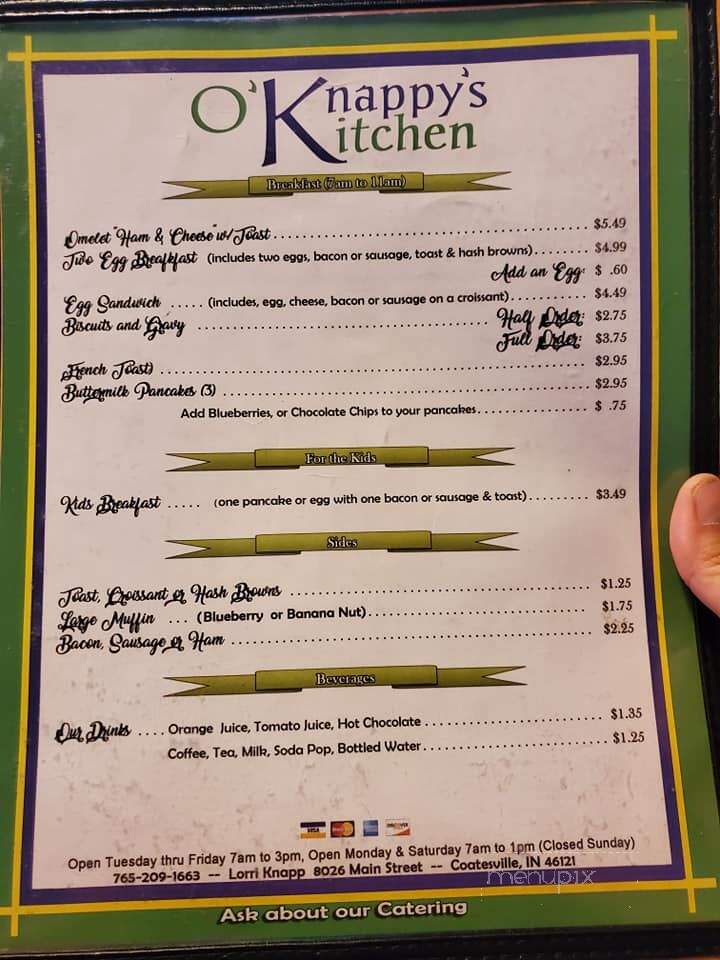 O'Knappy's
Kitchen
Breakfast (7am to 11am)
Omelet "Ham & Cheese" w/ Toast ........ $5.49
Two Egg Breakfast (includes two eggs, bacon or sausage, toast & hash browns) ........ $4.99
Add an Egg: $ .60
Egg Sandwich ..... (includes, egg, cheese, bacon or sausage on a croissant) ........ $4.49
Biscuits and Gravy ........ Half Order: $2.75
Full Order: $3.75
French Toast) ........ $2.95
Buttermilk Pancakes (3) ........ $2.95
Add Blueberries, or Chocolate Chips to your pancakes ........ $ .75
For the Kids
Kids Breakfast ..... (one pancake or egg with one bacon or sausage & toast) ........ $3.49
Sides
Toast, Croissant or Hash Browns ........ $1.25
Large Muffin ... (Blueberry or Banana Nut) ........ $1.75
Bacon, Sausage or Ham ........ $2.25
Beverages
Our Drinks .... Orange Juice, Tomato Juice, Hot Chocolate ........ $1.35
Coffee, Tea, Milk, Soda Pop, Bottled Water ........ $1.25
VISA MasterCard DISCOVER
Open Tuesday thru Friday 7am to 3pm, Open Monday & Saturday 7am to 1pm (Closed Sunday)
765-209-1663 -- Lorri Knapp 8026 Main Street -- Coatesville, IN 46121
menupix
Ask about our Catering